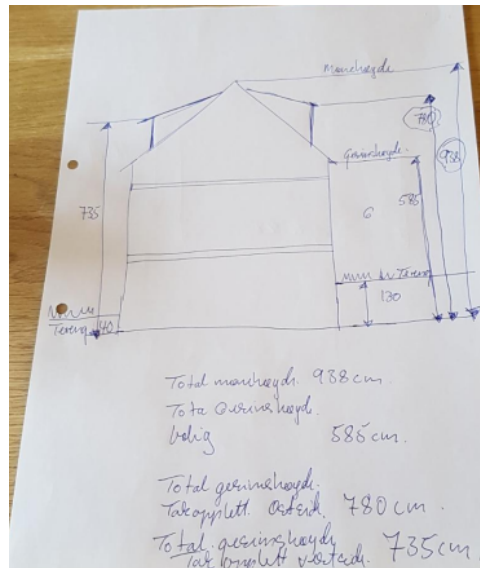 Mønehøyde
780
Gesimshøyde.
938
735
585
6
Terreng
130
Terreng 40
Total mønehøyde. 938 cm.
Tota Gesimshøyde.
bolig 585 cm.
Total gesimshøyde.
Takopplett. Østside. 780 cm.
Total gesimshøyde
Tak opplett vestside. 735 cm.